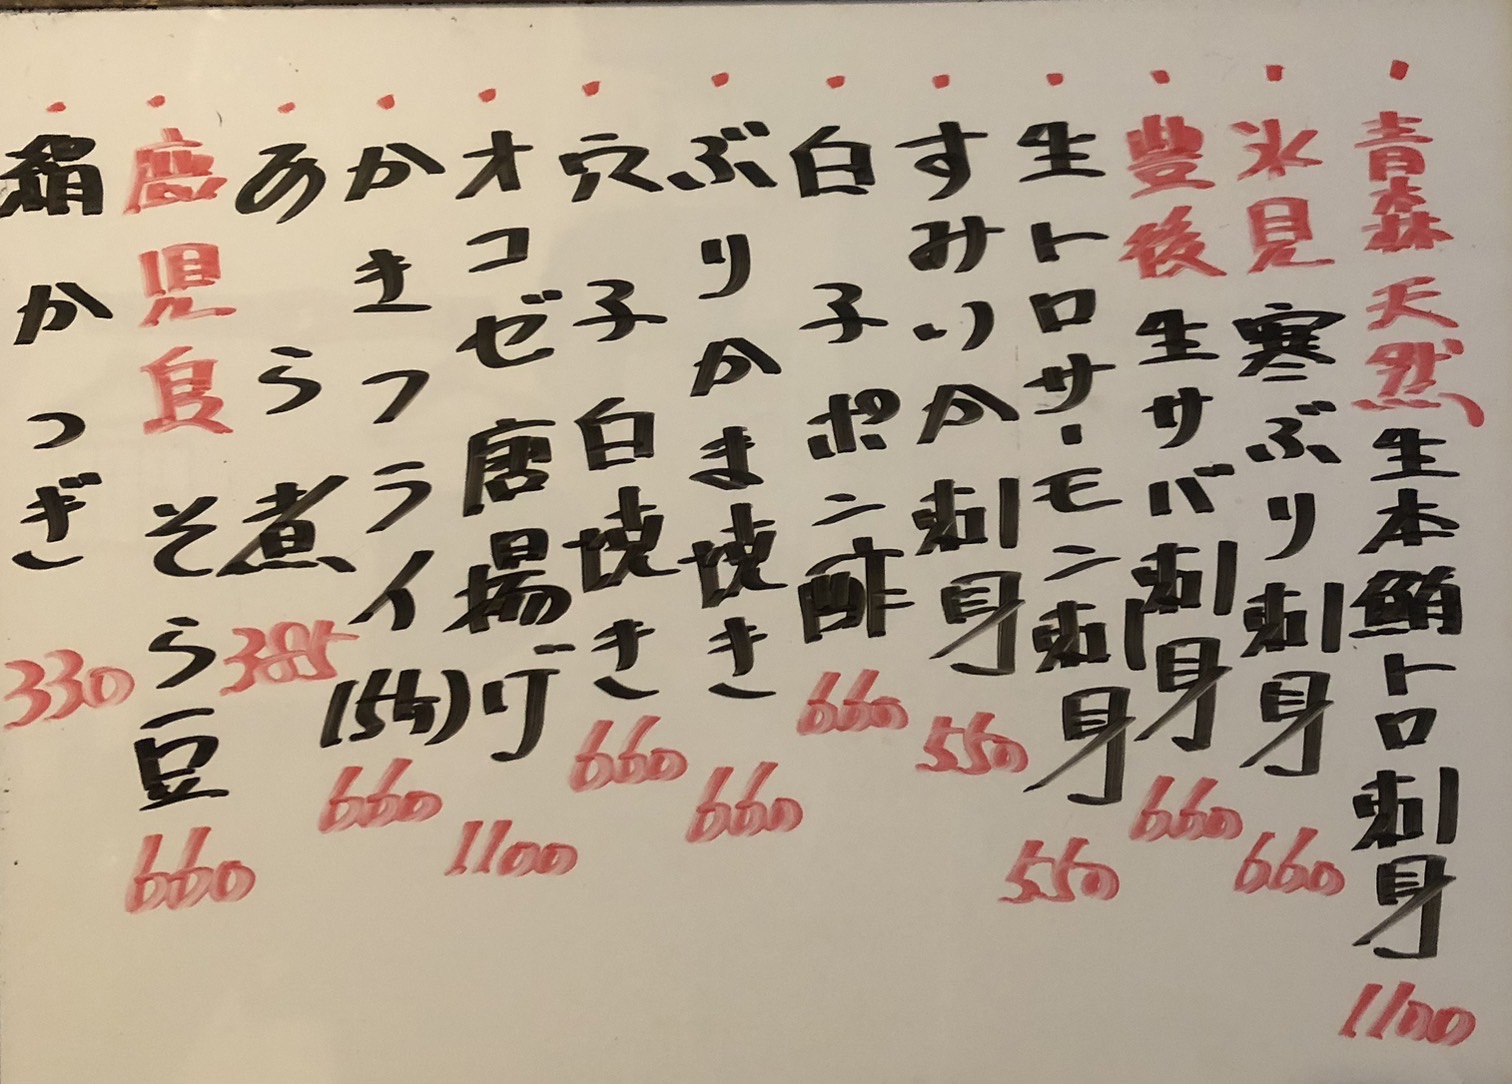 青森天然生本鮪トロ刺身 1100
氷見寒ぶり刺身 660
豊後生サバ刺身 660
生トロサーモン刺身 550
すみいか刺身 550
白子ポン酢 660
ぶりかま焼き 660
穴子白焼き 660
オコゼ唐揚げ 1100
かきフライ(5ケ) 660
あら煮 385
鹿児島そら豆 660
絹かつぎ 330